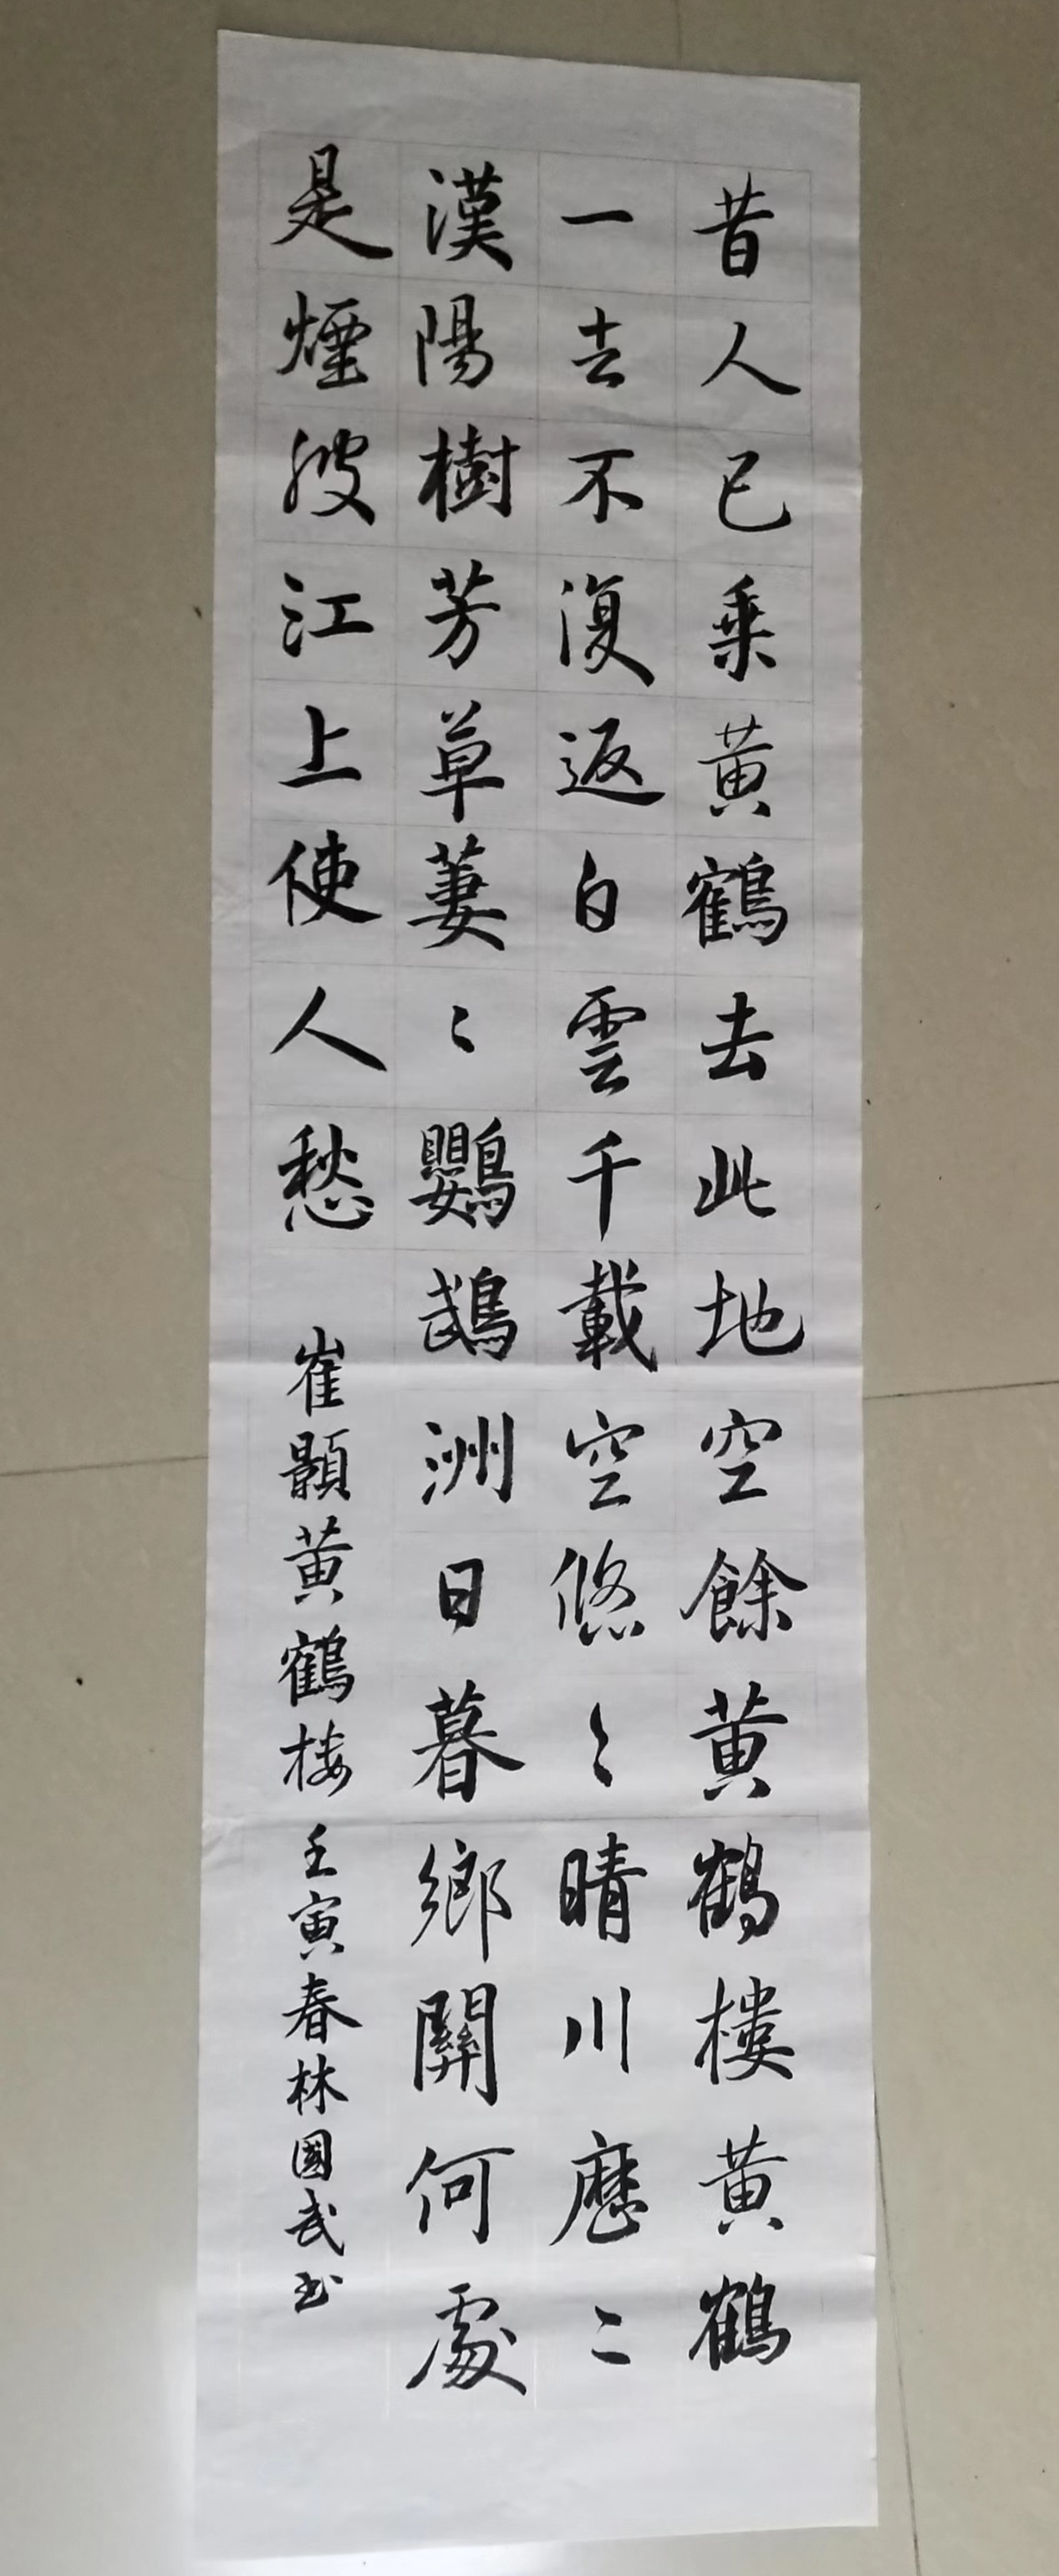 昔人已乘黄鶴去此地空餘黄鶴樓黄鶴
一去不復返白雲千載空悠〻晴川歷〻
漢陽樹芳草萋〻鸚鵡洲日暮鄉關何處
是煙波江上使人愁 崔顥黄鶴楼 壬寅春林國武书